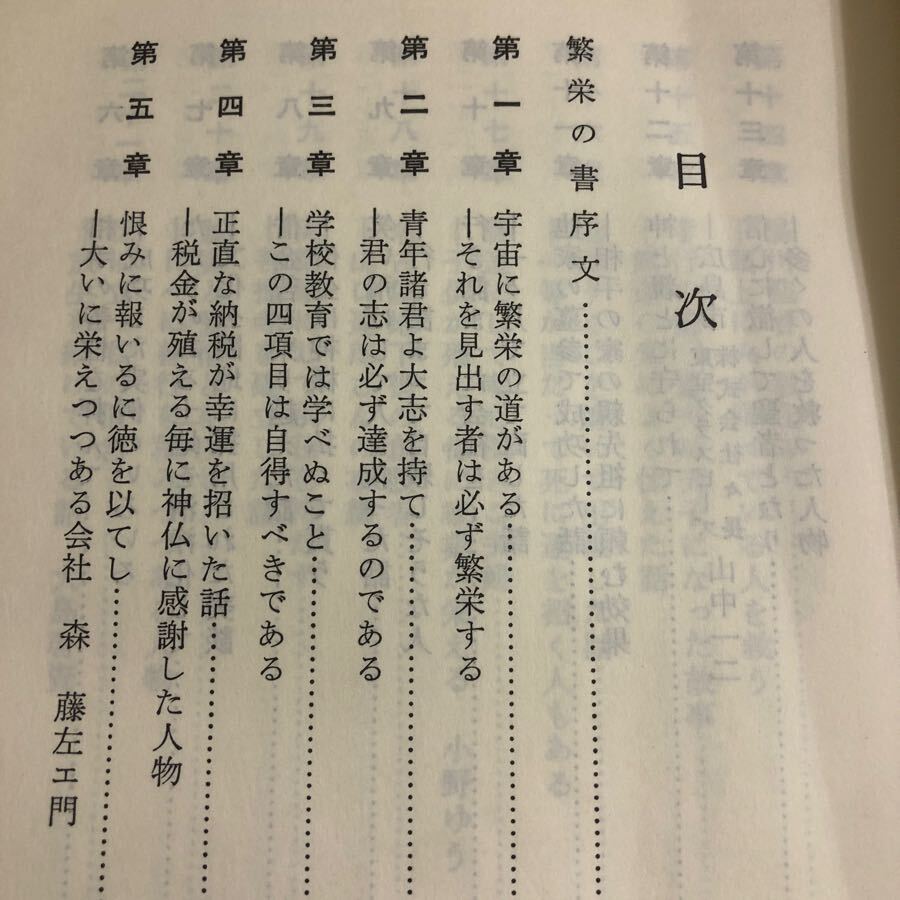 目次
繁栄の書 序文……………………
第一章 宇宙に繁栄の道がある……………………
―それを見出す者は必ず繁栄する
第二章 青年諸君よ大志を持て……………………
―君の志は必ず達成するのである
第三章 学校教育では学べぬこと……………………
―この四項目は自得すべきである
第四章 正直な納税が幸運を招いた話……………………
―税金が殖える毎に神仏に感謝した人物
第五章 恨みに報いるに徳を以てし……………………
―大いに栄えつつある会社 森 藤左エ門